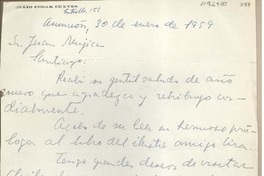 JULIO CESAR CHAVES
Estrella 155
Asunción, 30 de enero de 1959
Sr. Juan Mujica
Santiago:
Recibí su gentil saludo de año
nuevo que agradezco y retribuyo cor-
dialmente.
Acabo de leer su hermoso pró-
logo al libro del ilustre amigo
Tengo grandes deseos de visitar